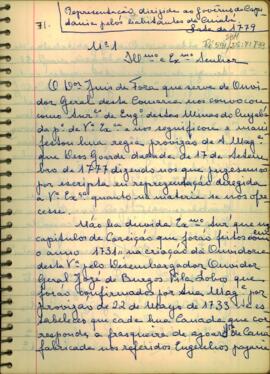 Representação, dirigida ao Govêrno da Capi
tania pelos habitantes de Cuiabá
Data de 1779
71.
Nº 1
Illmo e Exmo Senhor
O Dor Juiz de Fora que serve de Ouvi
dor Geral desta Comarca nos convocou
como Snrs de Engos destas Minas do Cuyabá
pa de Va Exa e nos significou e mani
festou huma regia provizão de S. Mage
que Deos Goarde datada de 17 de Setem
bro de 1777 dizendo nos que puzessemos
por escripto ou reprezentação dirigida
a Va Exa quanto na materia se nos ofe
recesse.
Não ha duvida Exmo Snr que nos
capitulos de Correição que forão feitos em
o anno 1731 na criação da Ouvidoria
desta Va pelo Desembargador Ouvidor
Geral Jozé de Burgos Villa Lobo que
forão confirmados por Sua Mage
Provizão de 22 de Março de 1733 se es
tabeleceu que cada hua Canada que cor
responde a frasqueira de agoarde de Cana
fabricada nos referidos Engenhos pagaria